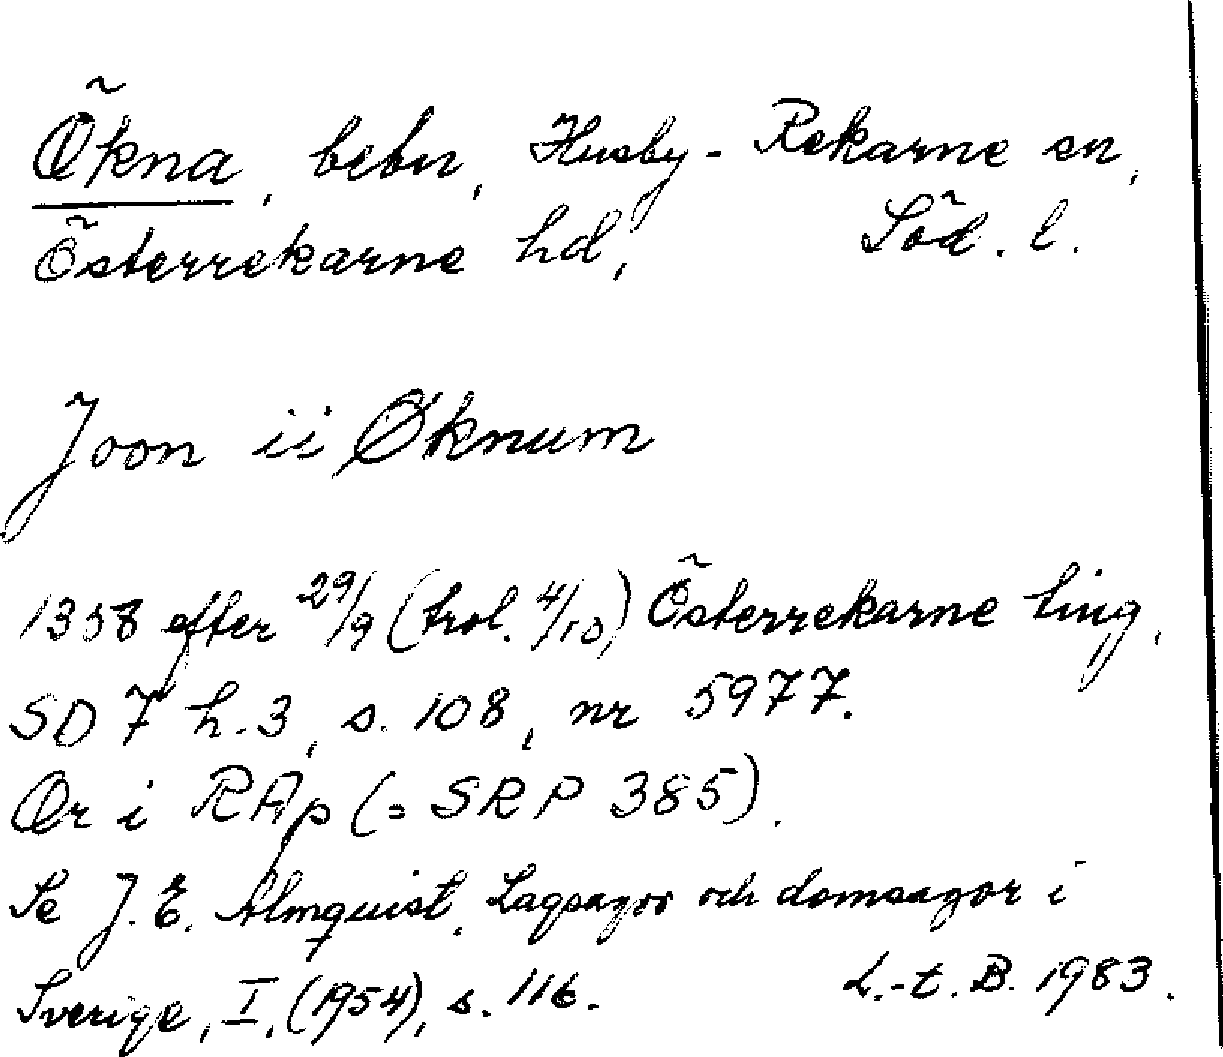 Ökna, bebn, Husby-Rekarne sn,
Österrekarne hd, Söd. l.
Joon ii Øknum
1358 efter 29/9 (trol. 4/10) Österrekarne ting,
SD 7 h.3, s. 108, nr 5977.
Or i RAp (= SRP 385).
Se J. E. Almquist, Lagsagor och domsagor i
Sverige, I, (1954), s. 116. L.-t. B. 1983.